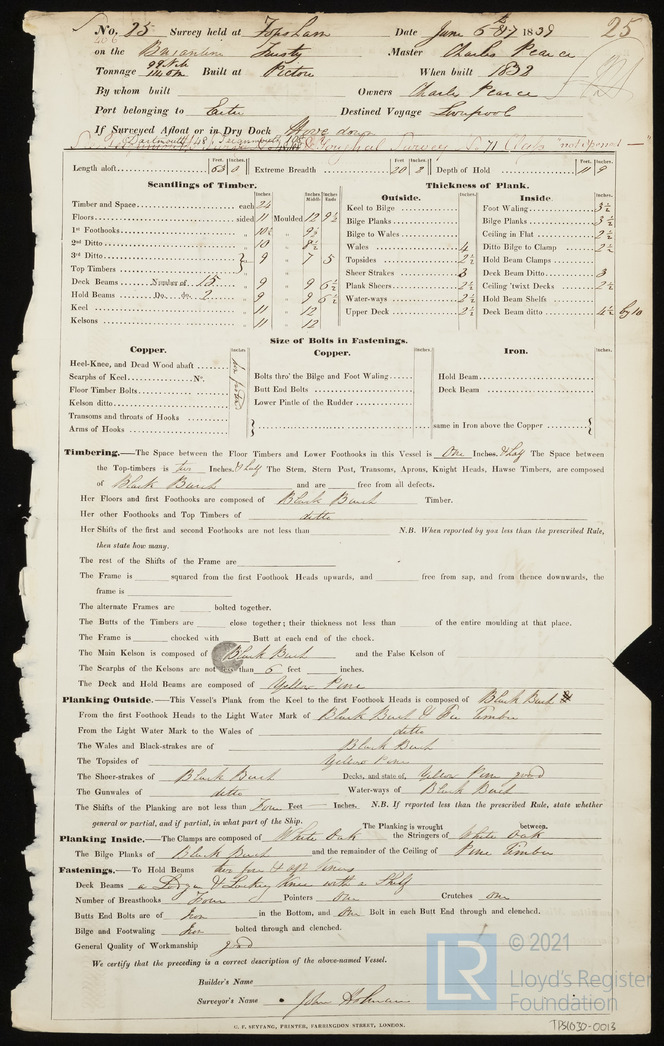 No. 25 Survey held at Topsham Date June 6th & 8th 1839 25
on the Barquentine Trusty Master Charles Pearce
Tonnage Built at Pictou When built 1838
By whom built Owners Charles Pearce
Port belonging to Exeter Destined Voyage Liverpool
If Surveyed Afloat or in Dry Dock Hove down
Dartmouth 48 Survey not opened
Feet. Inches. Feet. Inches. Feet. Inches.
Length aloft 68 0 Extreme Breadth 20 2 Depth of Hold 11 9
Scantlings of Timber. Thickness of Plank.
Inches Inches Middle. Inches Ends
Timber and Space each 24
Floors sided 11 Moulded 12 9½
1st Foothooks " 10½ " 9½
2nd Ditto " 10 " 8½
3rd Ditto
Top Timbers } " 9 " 7 5
Deck Beams Number of 15 " 9 " 9 6½
Hold Beams Do. do. 2 " 9 " 9 6½
Keel " 11 " 12
Kelsons " 11 " 12
Outside. Inches.
Keel to Bilge
Bilge Planks
Bilge to Wales
Wales 4
Topsides 2½
Sheer Strakes 3
Plank Sheers 2½
Water-ways 2½
Upper Deck 2½
Inside. Inches.
Foot Waling 3½
Bilge Planks 3½
Ceiling in Flat 2½
Ditto Bilge to Clamp 2½
Hold Beam Clamps
Deck Beam Ditto 3
Ceiling 'twixt Decks 2½
Hold Beam Shelfs
Deck Beam ditto 4½ by 10
Size of Bolts in Fastenings.
Copper. Copper. Iron.
Inches Inches. Inches.
Heel-Knee, and Dead Wood abaft
Scarphs of Keel No.
Floor Timber Bolts
Kelson ditto
Transoms and throats of Hooks
Arms of Hooks
Bolts thro' the Bilge and Foot Waling
Butt End Bolts
Lower Pintle of the Rudder
Hold Beam
Deck Beam
same in Iron above the Copper
Timbering.—The Space between the Floor Timbers and Lower Foothooks in this Vessel is One Inches. & half The Space between
the Top-timbers is two Inches. & half The Stem, Stern Post, Transoms, Aprons, Knight Heads, Hawse Timbers, are composed
of Black Burch and are free from all defects.
Her Floors and first Foothooks are composed of Black Burch Timber.
Her other Foothooks and Top Timbers of ditto
Her Shifts of the first and second Foothooks are not less than N.B. When reported by you less than the prescribed Rule,
then state how many.
The rest of the Shifts of the Frame are
The Frame is squared from the first Foothook Heads upwards, and free from sap, and from thence downwards, the
frame is
The alternate Frames are bolted together.
The Butts of the Timbers are close together; their thickness not less than of the entire moulding at that place.
The Frame is chocked with Butt at each end of the chock.
The Main Kelson is composed of Black Burch and the False Kelson of
The Scarphs of the Kelsons are not less than 6 feet inches.
The Deck and Hold Beams are composed of Yellow Pine
Planking Outside.—This Vessel's Plank from the Keel to the first Foothook Heads is composed of Black Burch
From the first Foothook Heads to the Light Water Mark of Black Burch & Fir timber
From the Light Water Mark to the Wales of ditto
The Wales and Black-strakes are of Black Burch
The Topsides of Yellow Pine
The Sheer-strakes of Black Burch Decks, and state of, Yellow Pine good
The Gunwales of ditto Water-ways of Black Burch
The Shifts of the Planking are not less than Four Feet Inches. N.B. If reported less than the prescribed Rule, state whether
general or partial, and if partial, in what part of the Ship. The Planking is wrought between.
Planking Inside.—The Clamps are composed of White Oak the Stringers of White Oak
The Bilge Planks of Black Burch and the remainder of the Ceiling of Pine timber
Fastenings.—To Hold Beams two fore & aft knees
Deck Beams a Lodge & Locking Knee with a Shelf
Number of Breasthooks Four Pointers one Crutches one
Butts End Bolts are of Iron in the Bottom, and One Bolt in each Butt End through and clenched.
Bilge and Footwaling Iron bolted through and clenched.
General Quality of Workmanship good
We certify that the preceding is a correct description of the above-named Vessel.
Builder's Name
Surveyor's Name John Holman
C. F. SEYFANG, PRINTER, FARRINGDON STREET, LONDON.
LR © 2021
Lloyd's Register
Foundation
TPS1030-0013